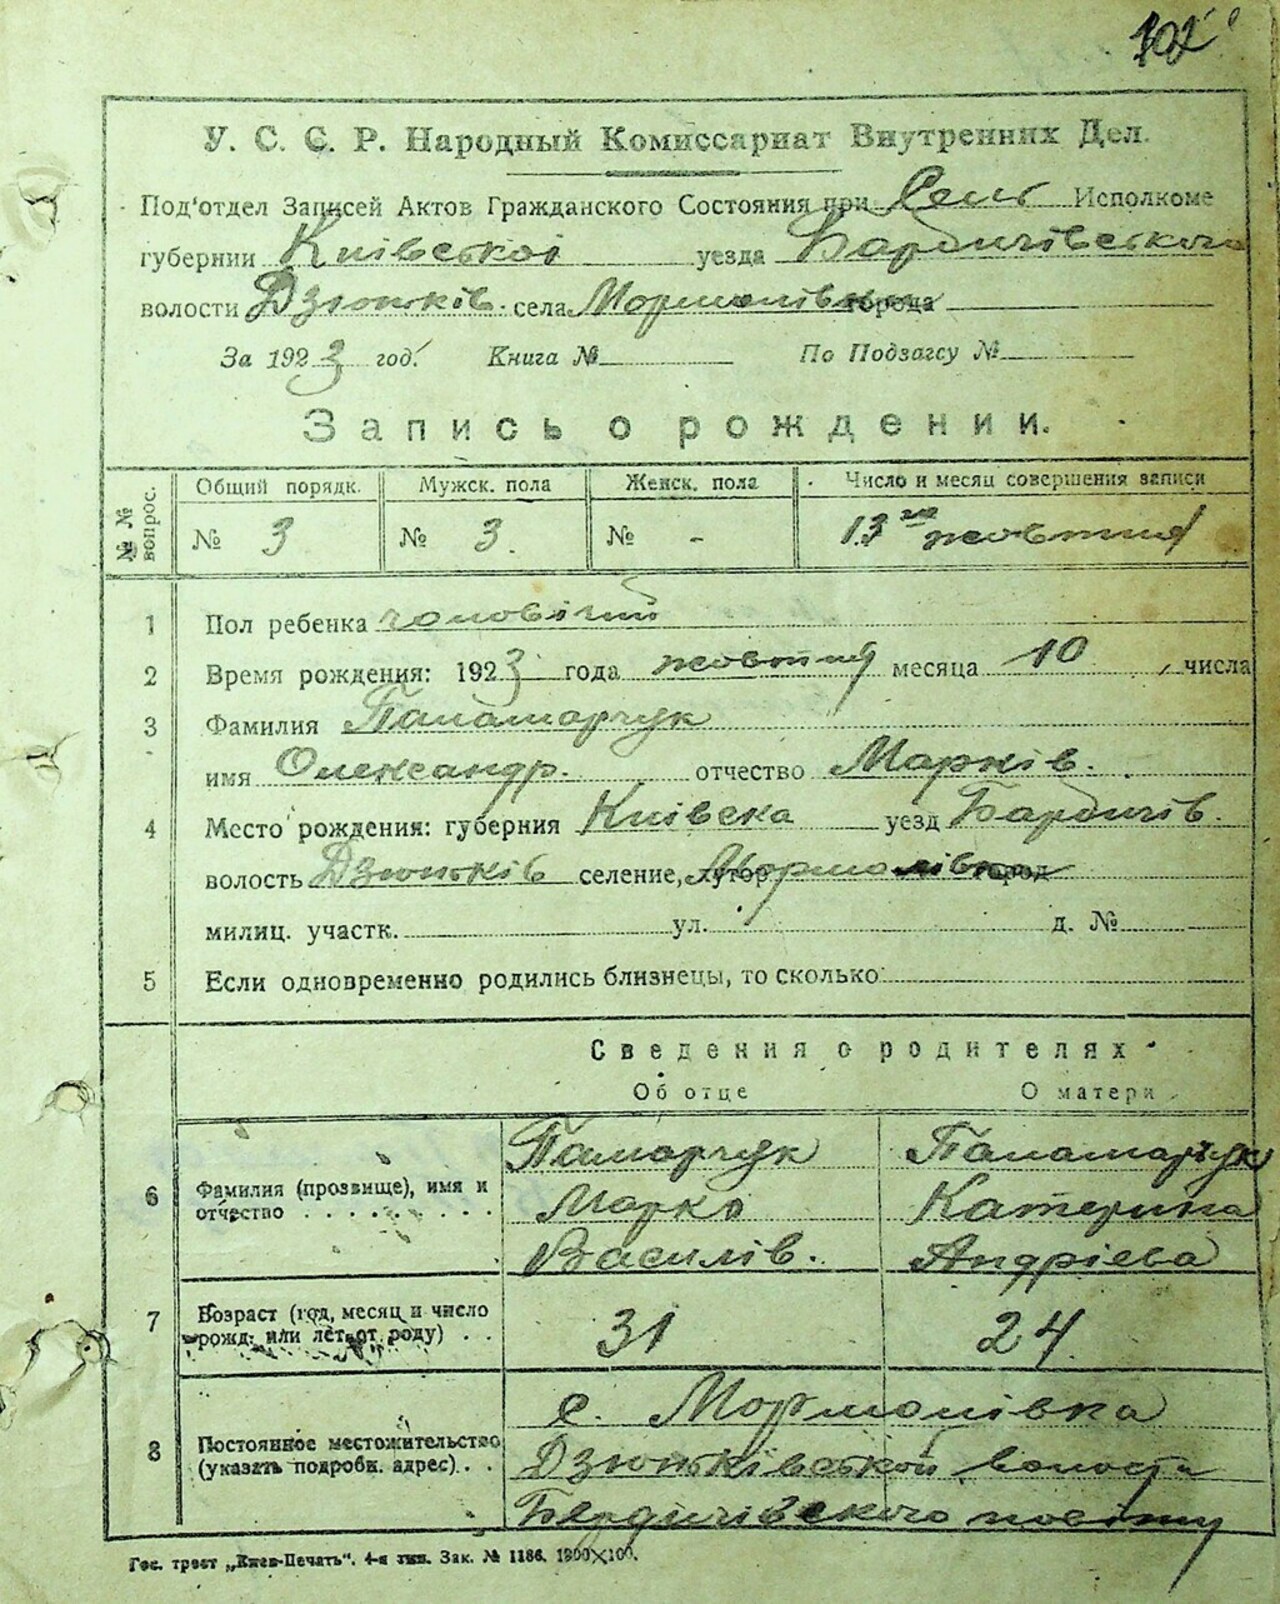 102
У. С. С. Р. Народный Комиссариат Внутренних Дел.
Под'отдел Записей Актов Гражданского Состояния при Сель Исполкоме
губернии Київської уезда Бардичівського
волости Дзюньків. села Мормолівки города
За 1923 год. Книга № По Подзагсу №
Запись о рождении.
№№ вопрос. Общий порядк. Мужск. пола Женск. пола Число и месяц совершения записи
№ 3 № 3. № - 13го жовтня
1 Пол ребенка чоловічий
2 Время рождения: 1923 года жовтня месяца 10 числа
3 Фамилия Паламарчук
имя Олександр. отчество Марків.
4 Место рождения: губерния Київська уезд Бардичів.
волость Дзюньків селение, хутор, Мормолівка город
милиц. участк. ул. д. №
5 Если одновременно родились близнецы, то сколько
Сведения о родителях
Об отце О матери
6 Фамилия (прозвище), имя и отчество Памарчук Паламарчук
Марко Катерина
Василів. Андрієва
7 Возраст (год, месяц и число рожд. или лет от роду) 31 24
8 Постоянное местожительство (указать подробн. адрес) с. Мормолівка
Дзюньківської волости
Бердичівского повіту
Гос. трест „Киев-Печать“. 4-я тип. Зак. № 1186. 1900×100.